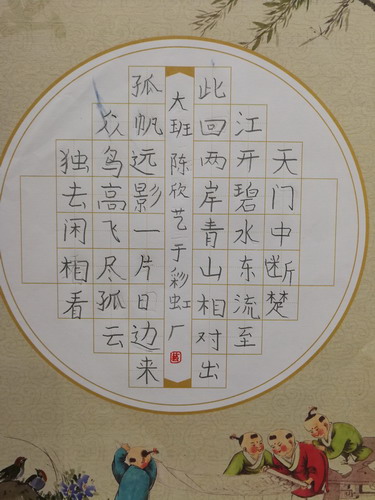 天门中断楚
江开碧水东流至
此回两岸青山相对出
大班 陈欣艺 于彩虹厂
孤帆远影一片日边来
众鸟高飞尽孤云
独去闲相看